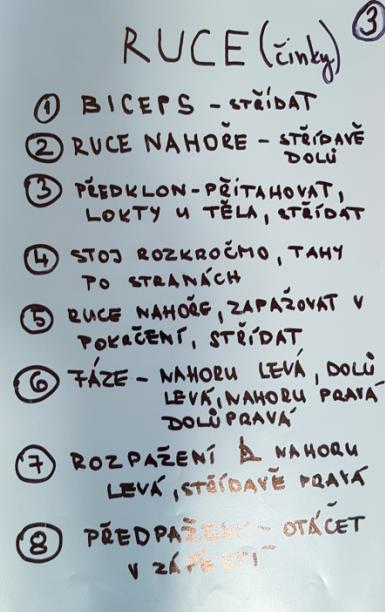 ③
RUCE (činky)
① BICEPS - STŘÍDAT
② RUCE NAHOŘE - STŘÍDAVĚ
DOLŮ
③ PŘEDKLON-PŘITAHOVAT,
LOKTY U TĚLA, STŘÍDAT
④ STOJ ROZKROČMO, TAHY
PO STRANÁCH
⑤ RUCE NAHOŘE, ZAPAŽOVAT V
POKRČENÍ, STŘÍDAT
⑥ FÁZE - NAHORU LEVÁ, DOLŮ
LEVÁ, NAHORU PRAVÁ
DOLŮ PRAVÁ
⑦ ROZPAŽENÍ NAHORU
LEVÁ, STŘÍDAVĚ PRAVÁ
⑧ PŘEDPAŽENÍ - OTÁČET
V ZÁPĚSTÍ